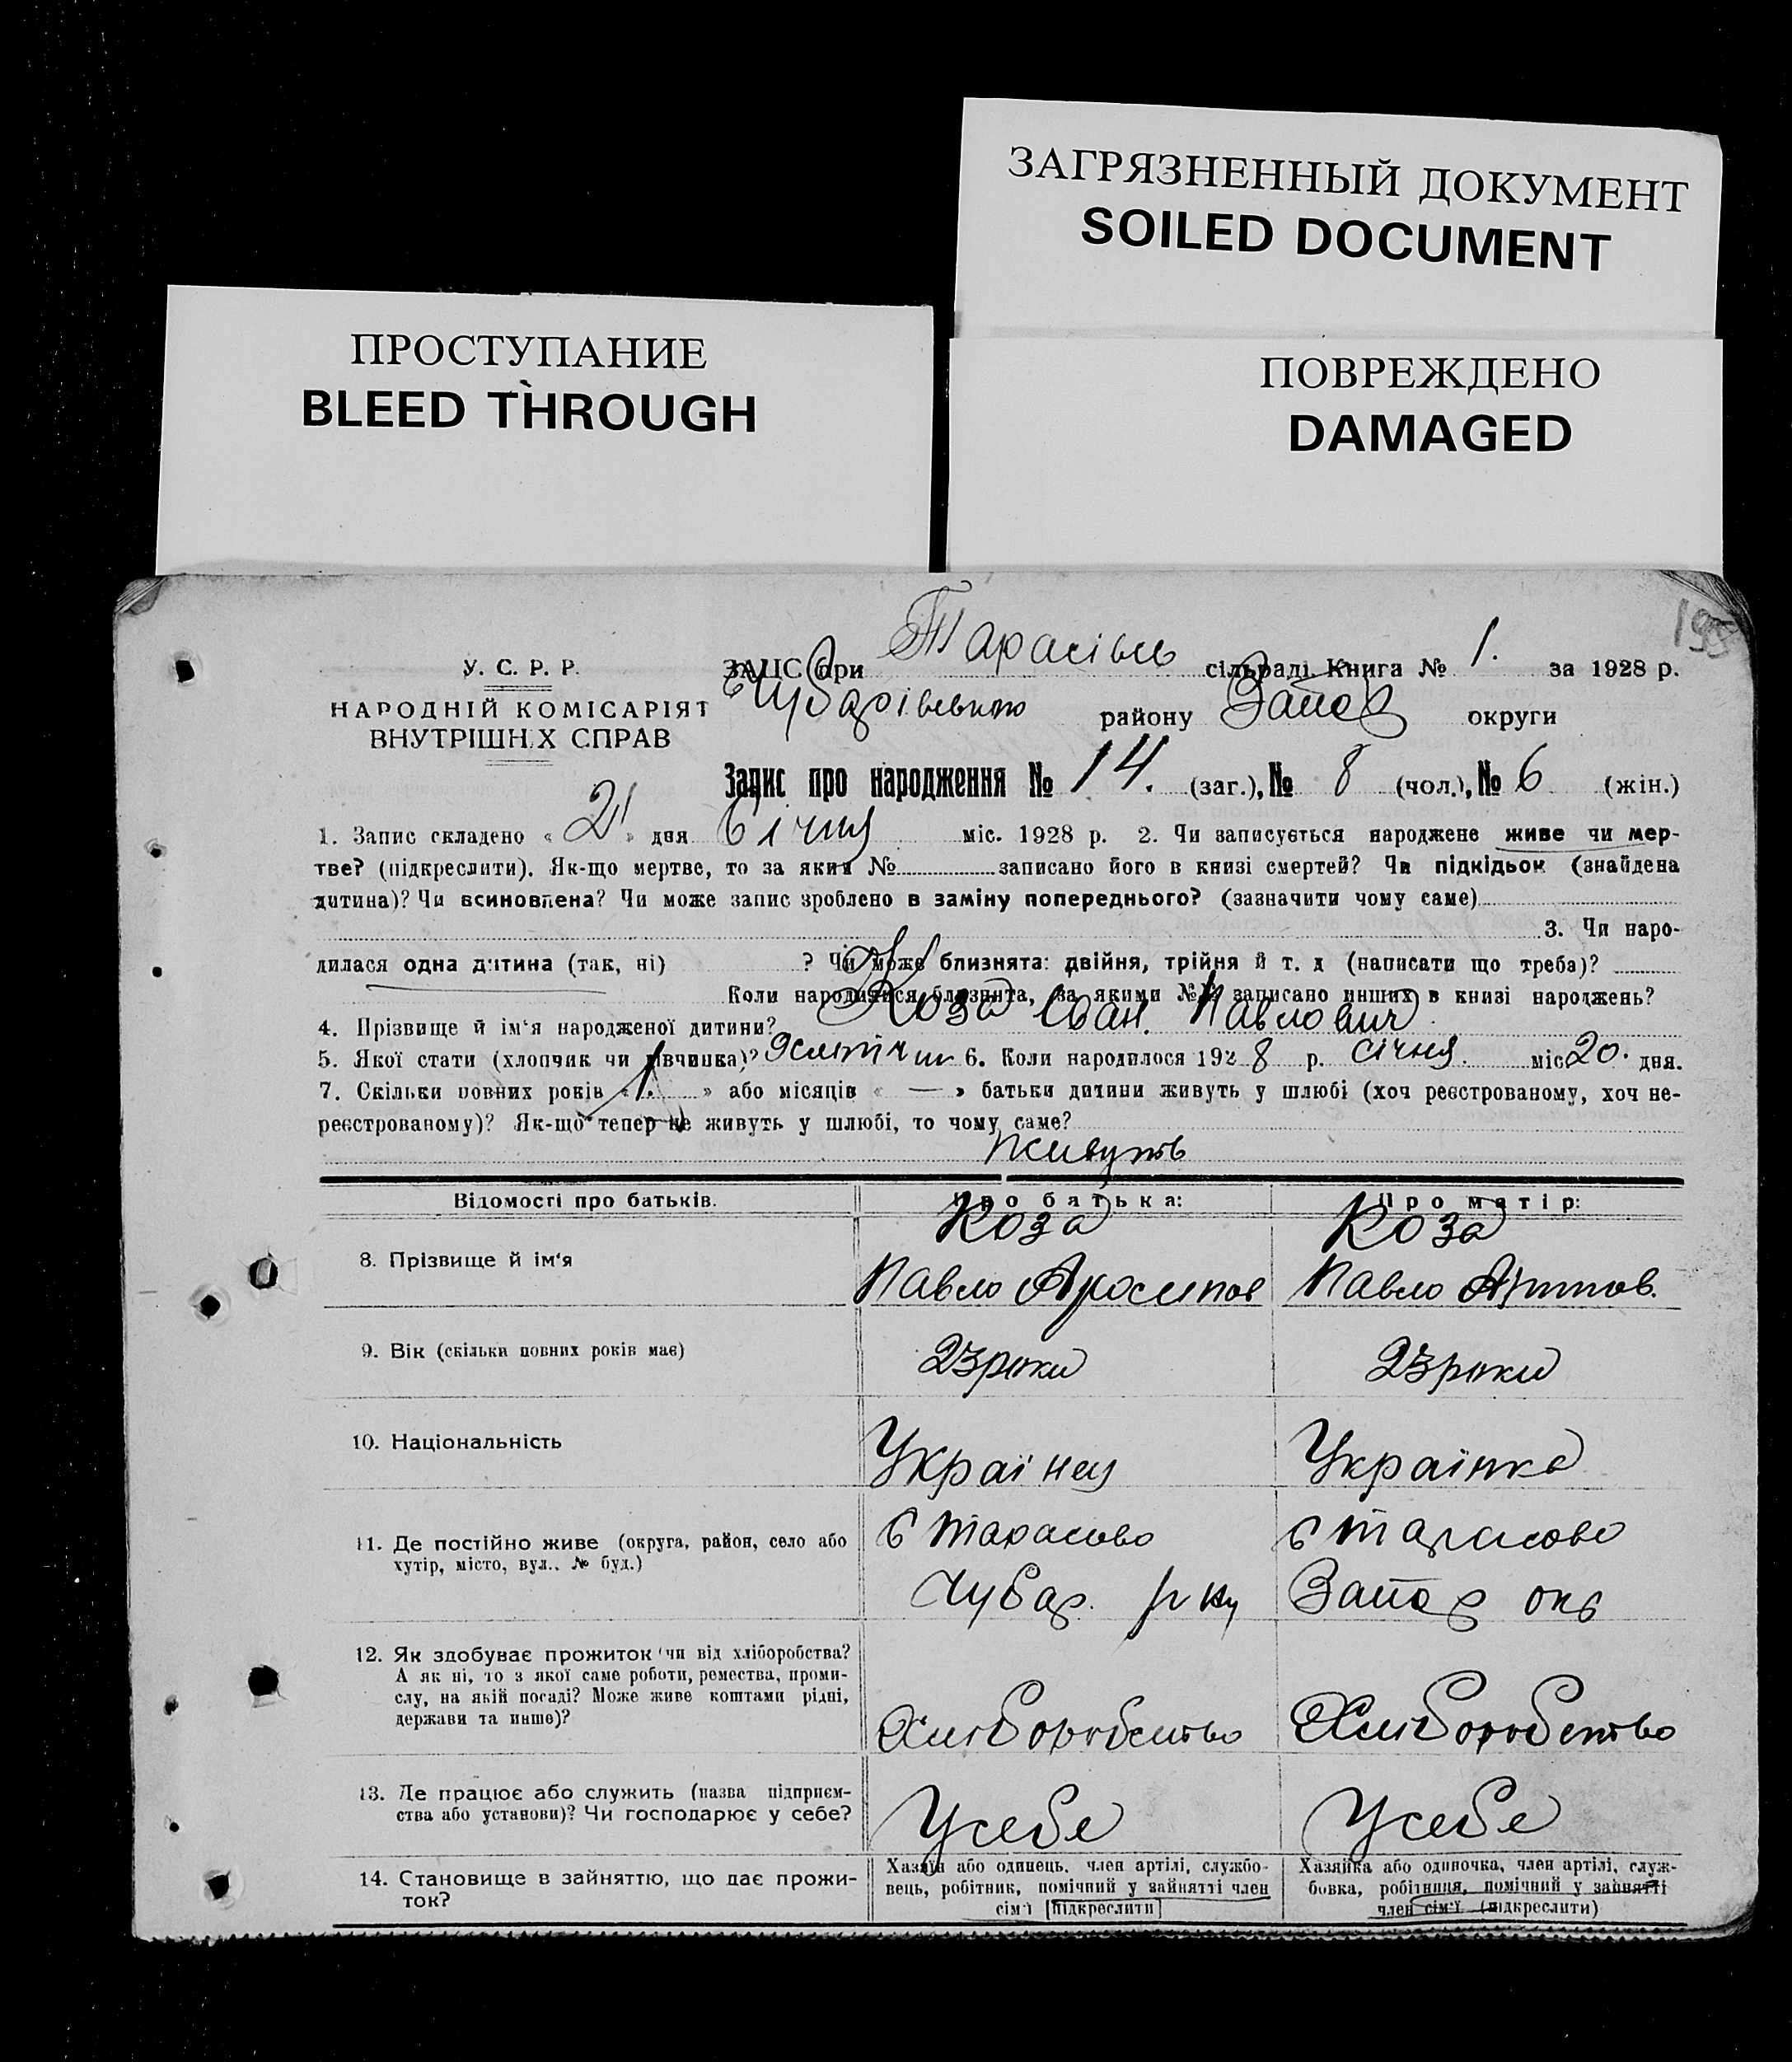 ЗАГРЯЗНЕННЫЙ ДОКУМЕНТ
SOILED DOCUMENT
ПРОСТУПАНИЕ
BLEED THROUGH
ПОВРЕЖДЕНО
DAMAGED
У. С. Р. Р.
НАРОДНІЙ КОМІСАРІЯТ
ВНУТРІШНИХ СПРАВ
ЗАЦС при сільраді. Книга № 1. за 1928 р.
району Запор округи
Запис про народження № 14. (заг.), № 8 (чол.), № 6 (жін.)
1. Запис складено « 21 » дня Січня міс. 1928 р. 2. Чи записується народжене живе чи мер-
тве? (підкреслити). Як-що мертве, то за яким № записано його в книзі смертей? Чи підкідьок (знайдена
дитина)? Чи всиновлена? Чи може запис зроблено в заміну попереднього? (зазначити чому саме)
3. Чи наро-
дилася одна дитина (так, ні) ? Чи може близнята: двійня, трійня й т. д (написати що треба)?
Коли народилися близнята, за якими №№ записано инших в книзі народжень?
4. Прізвище й ім'я народженої дитини? Коза Іван. Павлович
5. Якої стати (хлопчик чи дівчинка)? 6. Коли народилося 1928 р. січня. міс. 20. дня.
7. Скільки повних років « 1. » або місяців « — » батьки дитини живуть у шлюбі (хоч реєстрованому, хоч не-
реєстрованому)? Як-що тепер не живуть у шлюбі, то чому саме?
живуть
Відомості про батьків. Про батька: Про матір:
Коза Коза
8. Прізвище й ім'я
Павло Павло
9. Вік (скільки повних років має) 23 роки 23 роки
10. Національність Українец Українка
11. Де постійно живе (округа, район, село або
хутір, місто, вул., № буд.)
с Тарасово с Тарасово
Чубар. р ну Запор окр
12. Як здобуває прожиток (чи від хліборобства?
А як ні, то з якої саме роботи, ремества, проми-
слу, на якій посаді? Може живе коштами рідні,
держави та инше)?
Хліборобство Хліборобство
13. Де працює або служить (назва підприєм-
ства або установи)? Чи господарює у себе?
У себе У себе
14. Становище в зайняттю, що дає прожи-
ток?
Хазяїн або одинець, член артілі, службо-
вець, робітник, помічний у зайнятті член
сім'ї [підкреслити]
Хазяйка або одиночка, член артілі, служ-
бовка, робітниця, помічний у зайнятті
член сім'ї (підкреслити)